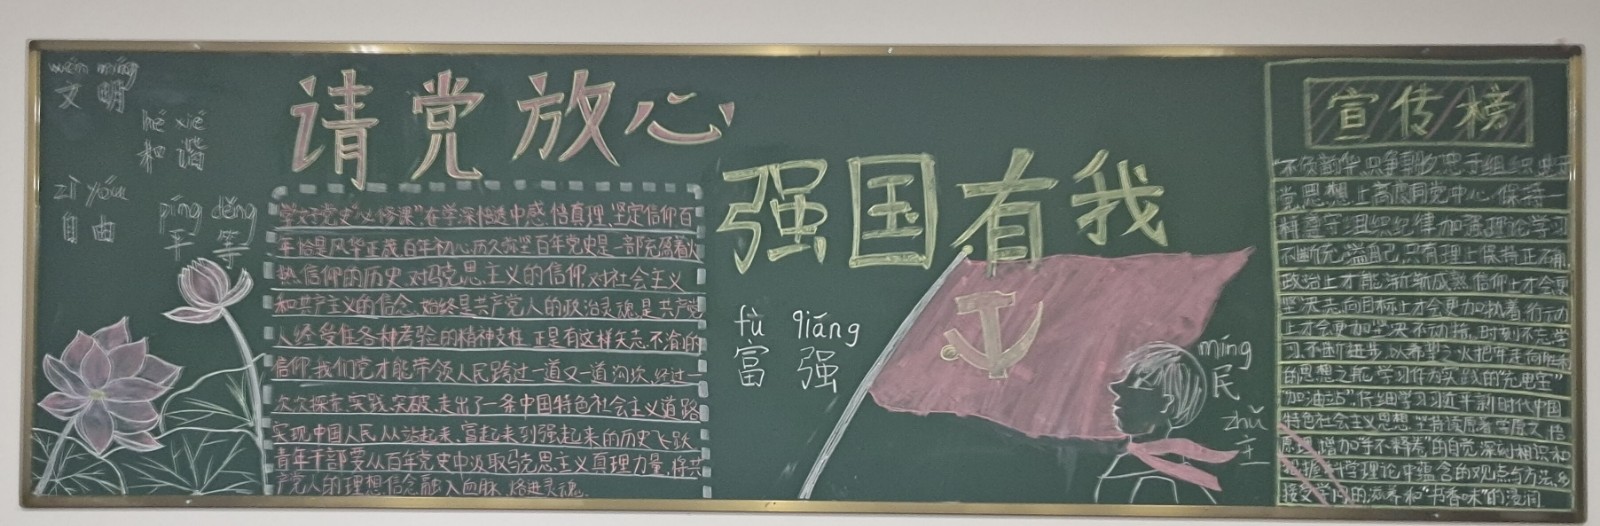 wén míng
文 明
hé xié
和 谐
zì yóu
自 由
píng děng
平 等
请党放心
强国有我
学好党史"必修课"在学深悟透中感悟真理,坚定信仰百
年恰是风华正茂,百年初心历久弥坚百年党史是一部充盈着火
热信仰的历史,对马克思主义的信仰,对社会主义
和共产主义的信念,始终是共产党人的政治灵魂,是共产党
人经受住各种考验的精神支柱 正是有这样矢志不渝的
信仰,我们党才能带领人民跨过一道又一道沟坎,经过一
次次探索,实践,突破,走出了一条中国特色社会主义道路
实现中国人民从站起来、富起来到强起来的历史飞跃
青年干部要从百年党史中汲取马克思主义真理力量,将共
产党人的理想信念融入血脉,熔进灵魂.
fù qiáng
富 强
míng
民
zhǔ
主
宣传榜
"不负韶华,只争朝夕,忠于组织,忠于
党,思想上高度同党中心保持一
遵守组织纪律,加强理论学习
不断充溢自己,只有理上保持正不
政治上才能渐渐成熟,信仰上才会更
坚决,志向目标上才会更加执着,行动
上才会更加坚决不动摇,时刻不忘学
习,不断进步,以希望之火把牢走向胜利
的思想之舵,学习作为实践的"充电宝"
"加油站",仔细学习习近平新时代中国
特色社会主义思想,坚持读原著学原文,悟
原理,增加"手不释卷"的自觉,深刻相识和
把握科学理论中蕴含的观点与方法,
接受学问的滋养和"书香味"的浸润.